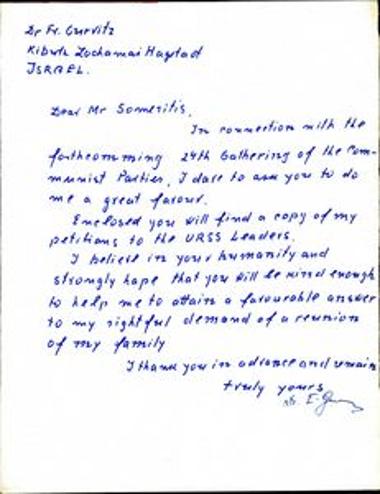 Dr Fr. Gurvitz
Kibutz Lochamai Hagetad
ISRAEL.
Dear Mr Someritis,
In connection with the
forthcomming 24th Gathering of the Com-
munist Parties, I dare to ask you to do
me a great favour.
Enclosed you will find a copy of my
petitions to the URSS Leaders.
I believe in your humanity and
strongly hope that you will be kind enough
to help me to attain a favourable answer
to my rightful demand of a reunion
of my family
I thank you in advance and remain
truly yours
Dr.